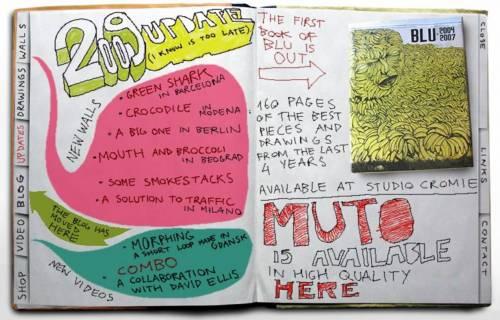 WALLS
DRAWINGS
UPDATES
BLOG
VIDEO
SHOP
2009 UPDATE
(I KNOW IS TOO LATE)
NEW WALLS
• GREEN SHARK
IN BARCELONA
• CROCODILE IN
MODENA
• A BIG ONE IN BERLIN
• MOUTH AND BROCCOLI
IN BEOGRAD
• SOME SMOKESTACKS
• A SOLUTION TO TRAFFIC
IN MILANO
THE BLOG HAS
MOVED
HERE
NEW VIDEOS
• MORPHING
A SHORT LOOP MADE IN GDANSK
COMBO
• A COLLABORATION
WITH DAVID ELLIS
THE FIRST
BOOK OF
BLU IS
OUT
BLU 2004
2007
160 PAGES
OF THE BEST
PIECES AND
DRAWINGS
FROM THE LAST
4 YEARS
AVAILABLE AT STUDIO CROMIE
MUTO
IS AVAILABLE
IN HIGH QUALITY
HERE
CLOSE
LINKS
CONTACT